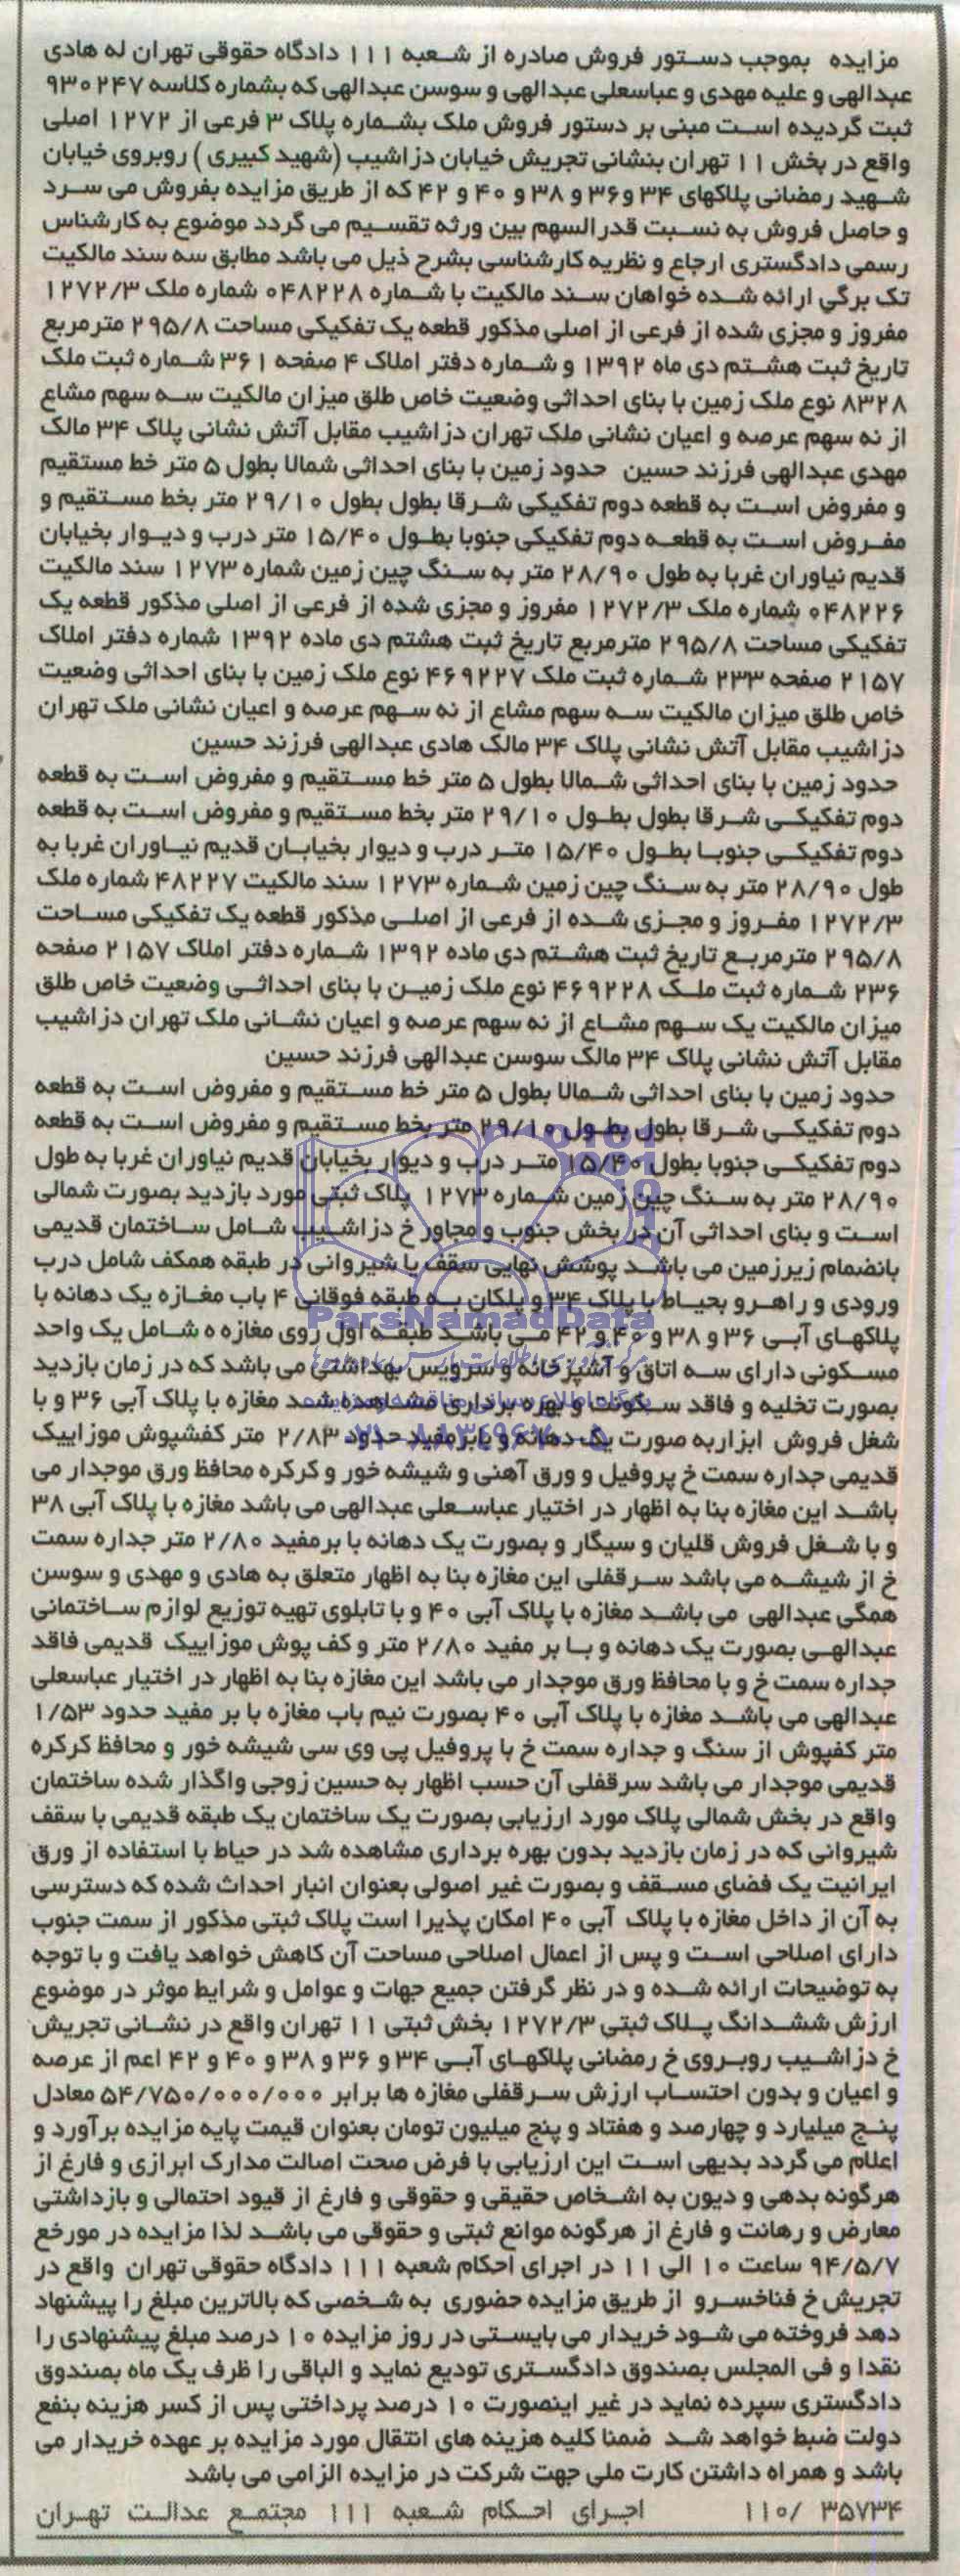 مزایده بموجب دستور فروش صادره از شعبه ۱۱۱ دادگاه حقوقی تهران له هادی
عبدالهی و علیه مهدی و عباسعلی عبدالهی و سوسن عبدالهی که بشماره کلاسه ۹۳۰۲۴۷
ثبت گردیده است مبنی بر دستور فروش ملک بشماره پلاک ۳ فرعی از ۱۲۷۲ اصلی
واقع در بخش ۱۱ تهران بنشانی تجریش خیابان دزاشیب (شهید کبیری ) روبروی خیابان
شهید رمضانی پلاکهای ۳۴ و۳۶ و ۳۸ و ۴۰ و ۴۲ که از طریق مزایده بفروش می سرد
و حاصل فروش به نسبت قدرالسهم بین ورثه تقسیم می گردد موضوع به کارشناس
رسمی دادگستری ارجاع و نظریه کارشناسی بشرح ذیل می باشد مطابق سه سند مالکیت
تک برگی ارائه شده خواهان سند مالکیت با شماره ۰۴۸۲۲۸ شماره ملک ۱۲۷۲/۳
مفروز و مجزی شده از فرعی از اصلی مذکور قطعه یک تفکیکی مساحت ۲۹۵/۸ مترمربع
تاریخ ثبت هشتم دی ماه ۱۳۹۲ و شماره دفتر املاک ۴ صفحه ۳۶۱ شماره ثبت ملک
۸۳۲۸ نوع ملک زمین با بنای احداثی وضعیت خاص طلق میزان مالکیت سه سهم مشاع
از نه سهم عرصه و اعیان نشانی ملک تهران دزاشیب مقابل آتش نشانی پلاک ۳۴ مالک
مهدی عبدالهی فرزند حسین حدود زمین با بنای احداثی شمالا بطول ۵ متر خط مستقیم
و مفروض است به قطعه دوم تفکیکی شرقا بطول بطول ۲۹/۱۰ متر بخط مستقیم و
مفروض است به قطعه دوم تفکیکی جنوبا بطول ۱۵/۴۰ متر درب و دیوار بخیابان
قدیم نیاوران غربا به طول ۲۸/۹۰ متر به سنگ چین زمین شماره ۱۲۷۳ سند مالکیت
۰۴۸۲۲۶ شماره ملک ۱۲۷۲/۳ مفروز و مجزی شده از فرعی از اصلی مذکور قطعه یک
تفکیکی مساحت ۲۹۵/۸ مترمربع تاریخ ثبت هشتم دی ماده ۱۳۹۲ شماره دفتر املاک
۲۱۵۷ صفحه ۲۳۳ شماره ثبت ملک ۴۶۹۲۲۷ نوع ملک زمین با بنای احداثی وضعیت
خاص طلق میزان مالکیت سه سهم مشاع از نه سهم عرصه و اعیان نشانی ملک تهران
دزاشیب مقابل آتش نشانی پلاک ۳۴ مالک هادی عبدالهی فرزند حسین
حدود زمین با بنای احداثی شمالا بطول ۵ متر خط مستقیم و مفروض است به قطعه
دوم تفکیکی شرقا بطول بطول ۲۹/۱۰ متر بخط مستقیم و مفروض است به قطعه
دوم تفکیکی جنوبا بطول ۱۵/۴۰ متر درب و دیوار بخیابان قدیم نیاوران غربا به
طول ۲۸/۹۰ متر به سنگ چین زمین شماره ۱۲۷۳ سند مالکیت ۴۸۲۲۷ شماره ملک
۱۲۷۲/۳ مفروز و مجزی شده از فرعی از اصلی مذکور قطعه یک تفکیکی مساحت
۲۹۵/۸ مترمربع تاریخ ثبت هشتم دی ماده ۱۳۹۲ شماره دفتر املاک ۲۱۵۷ صفحه
۲۳۶ شماره ثبت ملک ۴۶۹۲۲۸ نوع ملک زمین با بنای احداثی وضعیت خاص طلق
میزان مالکیت یک سهم مشاع از نه سهم عرصه و اعیان نشانی ملک تهران دزاشیب
مقابل آتش نشانی پلاک ۳۴ مالک سوسن عبدالهی فرزند حسین
حدود زمین با بنای احداثی شمالا بطول ۵ متر خط مستقیم و مفروض است به قطعه
دوم تفکیکی شرقا بطول بطول ۲۹/۱۰ متر بخط مستقیم و مفروض است به قطعه
دوم تفکیکی جنوبا بطول ۱۵/۴۰ متر درب و دیوار بخیابان قدیم نیاوران غربا به طول
۲۸/۹۰ متر به سنگ چین زمین شماره ۱۲۷۳ پلاک ثبتی مورد بازدید بصورت شمالی
است و بنای احداثی آن در بخش جنوب و مجاور خ دزاشیب شامل ساختمان قدیمی
بانضمام زیرزمین می باشد پوشش نهایی سقف یا شیروانی در طبقه همکف شامل درب
ورودی و راهرو بحیاط با پلاک ۳۴ و پلکان به طبقه فوقانی ۴ باب مغازه یک دهانه با
ParsNamadData
پلاکهای آبی ۳۶ و ۳۸ و ۴۰ و ۴۲ می باشد طبقه اول روی مغازه ه شامل یک واحد
مسکونی دارای سه اتاق و آشپزخانه و سرویس بهداشتی می باشد که در زمان بازدید
بصورت تخلیه و فاقد سکونت و بهره برداری مشاهده شد مغازه با پلاک آبی ۳۶ و با
شغل فروش ابزاربه صورت یک دهانه و با برمفید حدود ۲/۸۳ متر کفشپوش موزاییک
قدیمی جداره سمت خ پروفیل و ورق آهنی و شیشه خور و کرکره محافظ ورق موجدار می
باشد این مغازه بنا به اظهار در اختیار عباسعلی عبدالهی می باشد مغازه با پلاک آبی ۳۸
و با شغل فروش قلیان و سیگار و بصورت یک دهانه با برمفید ۲/۸۰ متر جداره سمت
خ از شیشه می باشد سرقفلی این مغازه بنا به اظهار متعلق به هادی و مهدی و سوسن
همگی عبدالهی می باشد مغازه با پلاک آبی ۴۰ و با تابلوی تهیه توزیع لوازم ساختمانی
عبدالهی بصورت یک دهانه و با بر مفید ۲/۸۰ متر و کف پوش موزاییک قدیمی فاقد
جداره سمت خ و با محافظ ورق موجدار می باشد این مغازه بنا به اظهار در اختیار عباسعلی
عبدالهی می باشد مغازه با پلاک آبی ۴۰ بصورت نیم باب مغازه با بر مفید حدود ۱/۵۳
متر کفپوش از سنگ و جداره سمت خ با پروفیل پی وی سی شیشه خور و محافظ کرکره
قدیمی موجدار می باشد سرقفلی آن حسب اظهار به حسین زوجی واگذار شده ساختمان
واقع در بخش شمالی پلاک مورد ارزیابی بصورت یک ساختمان یک طبقه قدیمی با سقف
شیروانی که در زمان بازدید بدون بهره برداری مشاهده شد در حیاط با استفاده از ورق
ایرانیت یک فضای مسقف و بصورت غیر اصولی بعنوان انبار احداث شده که دسترسی
به آن از داخل مغازه با پلاک آبی ۴۰ امکان پذیرا است پلاک ثبتی مذکور از سمت جنوب
دارای اصلاحی است و پس از اعمال اصلاحی مساحت آن کاهش خواهد یافت و با توجه
به توضیحات ارائه شده و در نظر گرفتن جمیع جهات و عوامل و شرایط موثر در موضوع
ارزش ششدانگ پلاک ثبتی ۱۲۷۲/۳ بخش ثبتی ۱۱ تهران واقع در نشانی تجریش
خ دزاشیب روبروی خ رمضانی پلاکهای آبی ۳۴ و ۳۶ و ۳۸ و ۴۰ و ۴۲ اعم از عرصه
و اعیان و بدون احتساب ارزش سرقفلی مغازه ها برابر ۵۴/۷۵۰/۰۰۰/۰۰۰ معادل
پنج میلیارد و چهارصد و هفتاد و پنج میلیون تومان بعنوان قیمت پایه مزایده برآورد و
اعلام می گردد بدیهی است این ارزیابی با فرض صحت اصالت مدارک ابرازی و فارغ از
هرگونه بدهی و دیون به اشخاص حقیقی و حقوقی و فارغ از قیود احتمالی و بازداشتی
معارض و رهانت و فارغ از هرگونه موانع ثبتی و حقوقی می باشد لذا مزایده در مورخع
۹۴/۵/۷ ساعت ۱۰ الی ۱۱ در اجرای احکام شعبه ۱۱۱ دادگاه حقوقی تهران واقع در
تجریش خ فناخسرو از طریق مزایده حضوری به شخصی که بالاترین مبلغ را پیشنهاد
دهد فروخته می شود خریدار می بایستی در روز مزایده ۱۰ درصد مبلغ پیشنهادی را
نقدا و فی المجلس بصندوق دادگستری تودیع نماید و الباقی را ظرف یک ماه بصندوق
دادگستری سپرده نماید در غیر اینصورت ۱۰ درصد پرداختی پس از کسر هزینه بنفع
دولت ضبط خواهد شد ضمنا کلیه هزینه های انتقال مورد مزایده بر عهده خریدار می
باشد و همراه داشتن کارت ملی جهت شرکت در مزایده الزامی می باشد
۱۱۰/ ۳۵۷۳۴ اجرای احکام شعبه ۱۱۱ مجتمع عدالت تهران